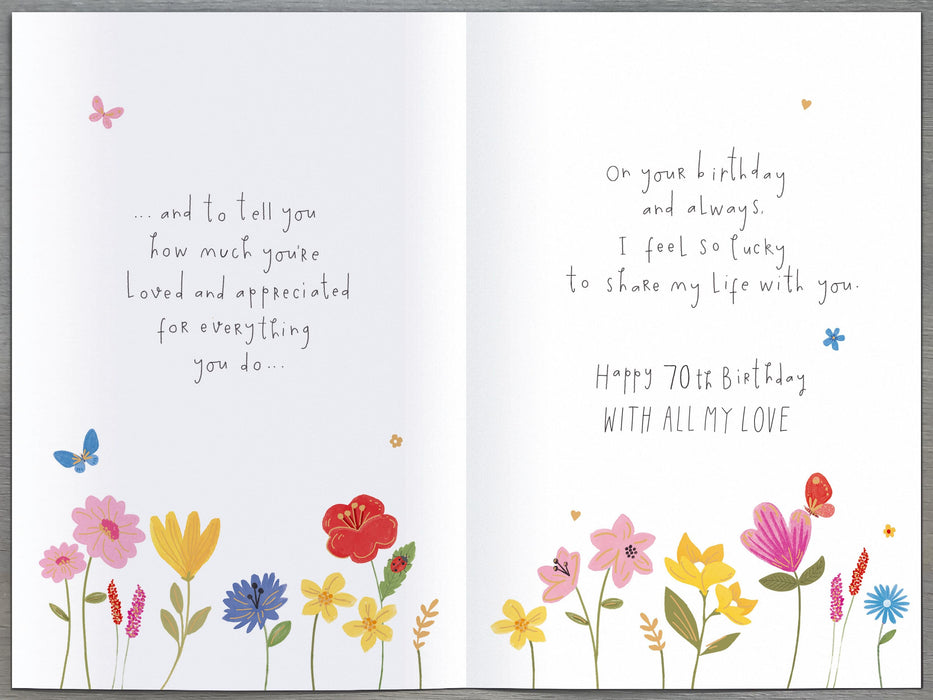 ... and to tell you
how much you're
loved and appreciated
for everything
you do...
On your birthday
and always,
I feel so lucky
to share my life with you.
Happy 70th Birthday
WITH ALL MY LOVE